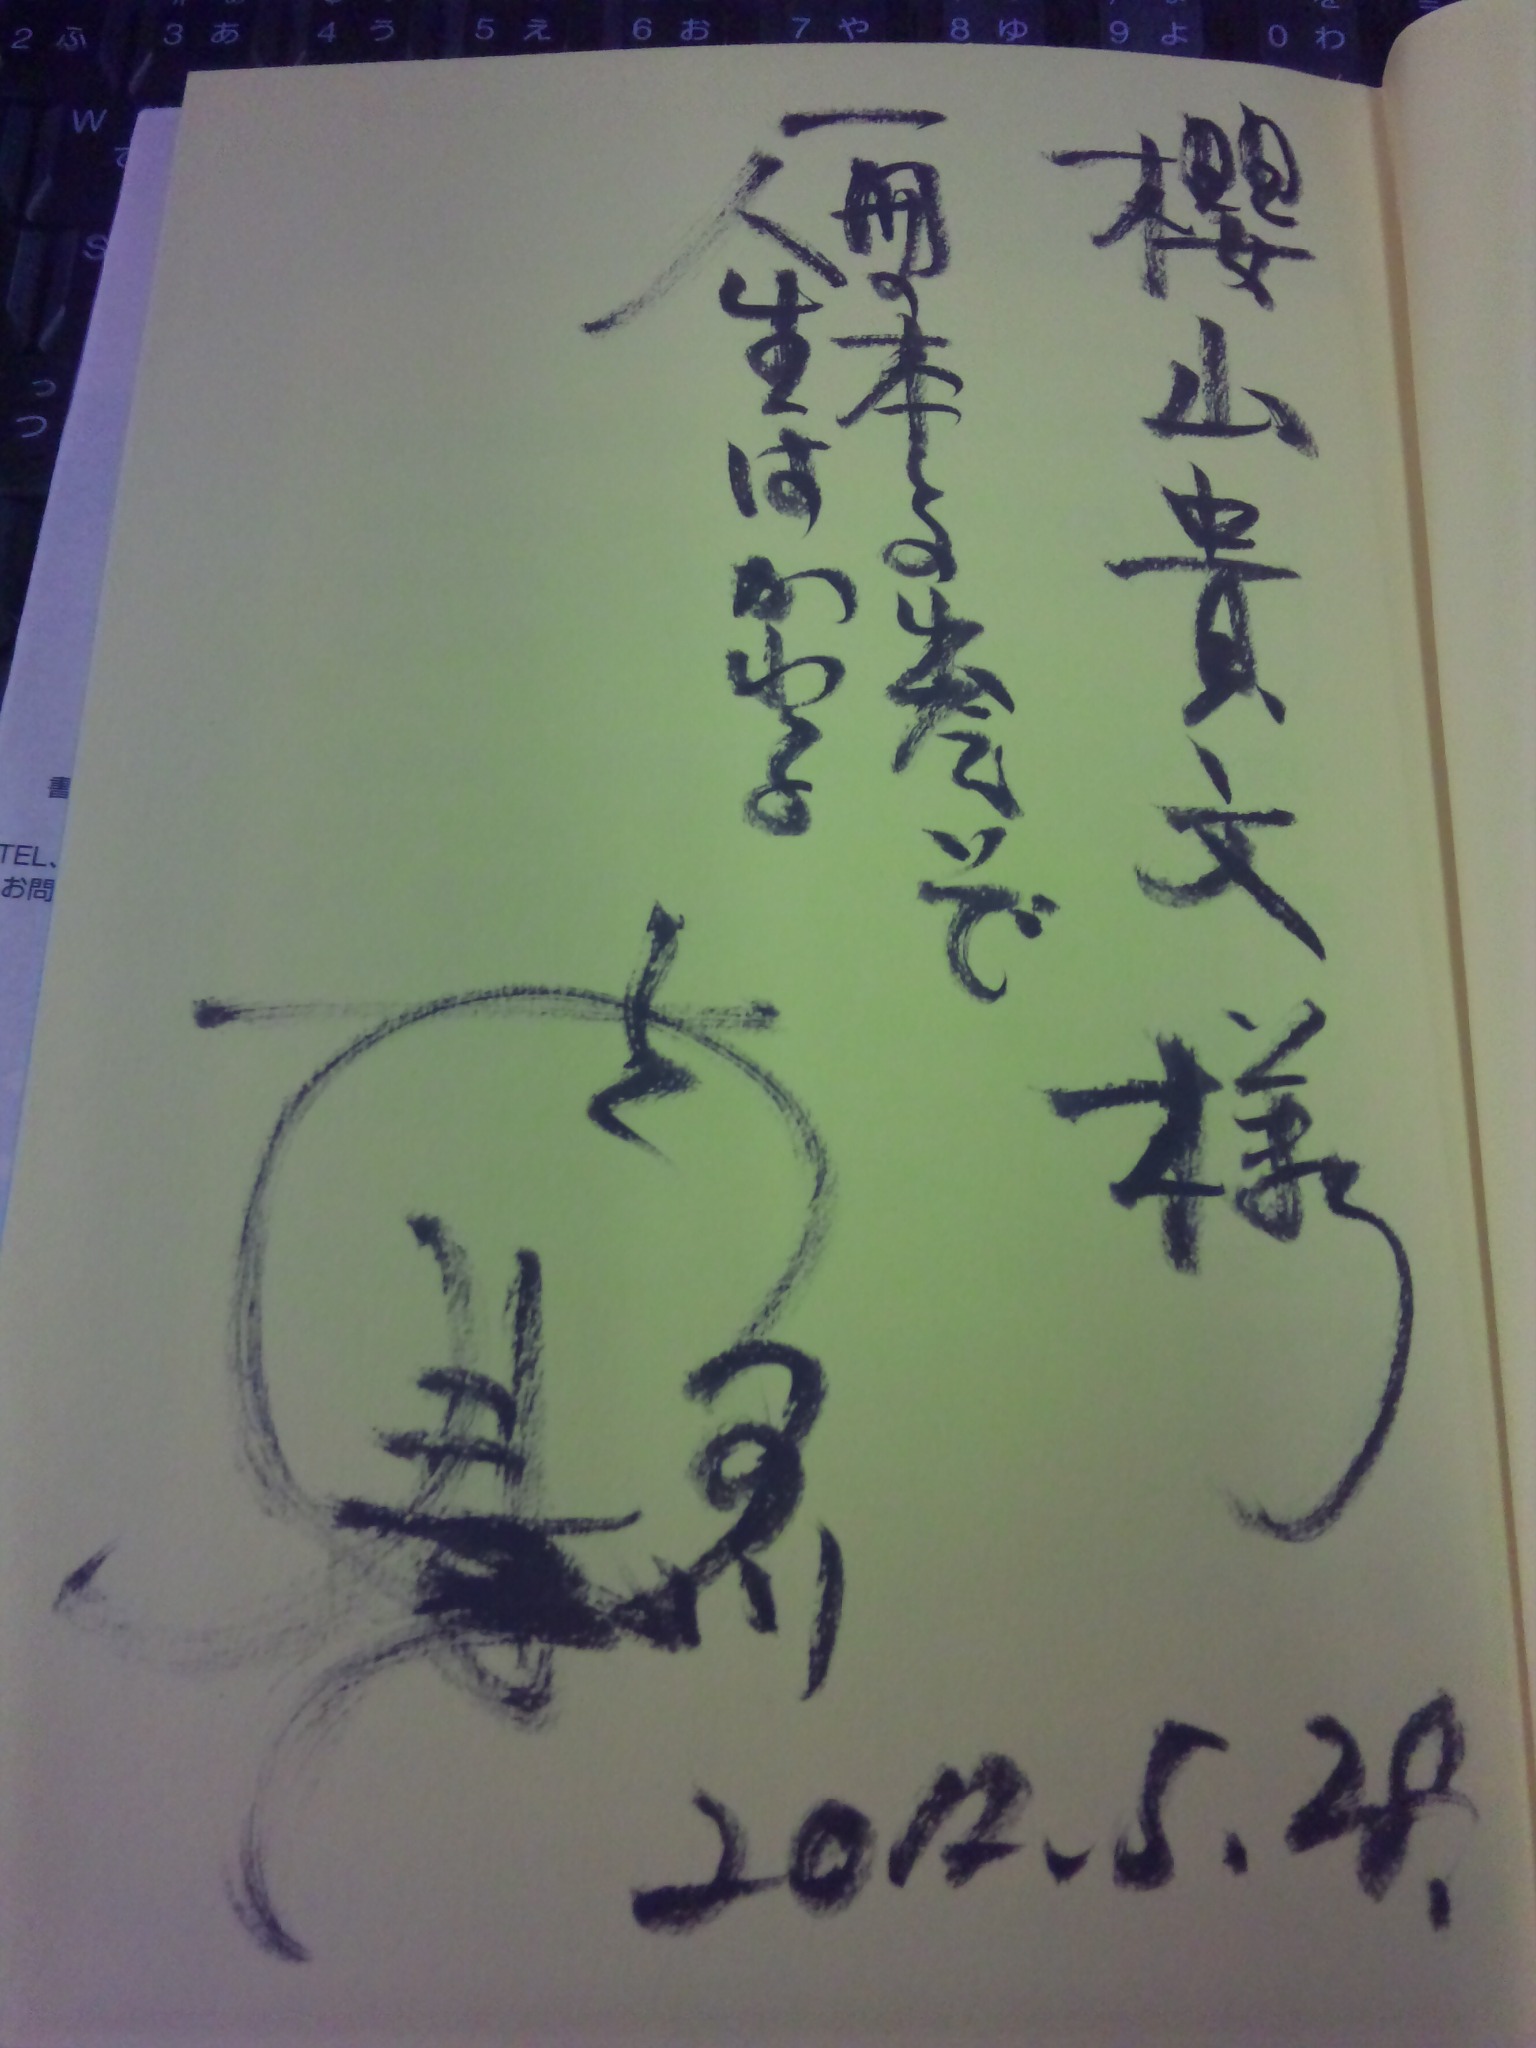 櫻山貴文様
一冊の本との出会いで
人生はかわる
2012.5.28.
2ふ 3あ 4う 5え 6お 7や 8ゆ 9よ 0わ
W
S
っ
つ
書
TEL、
お問